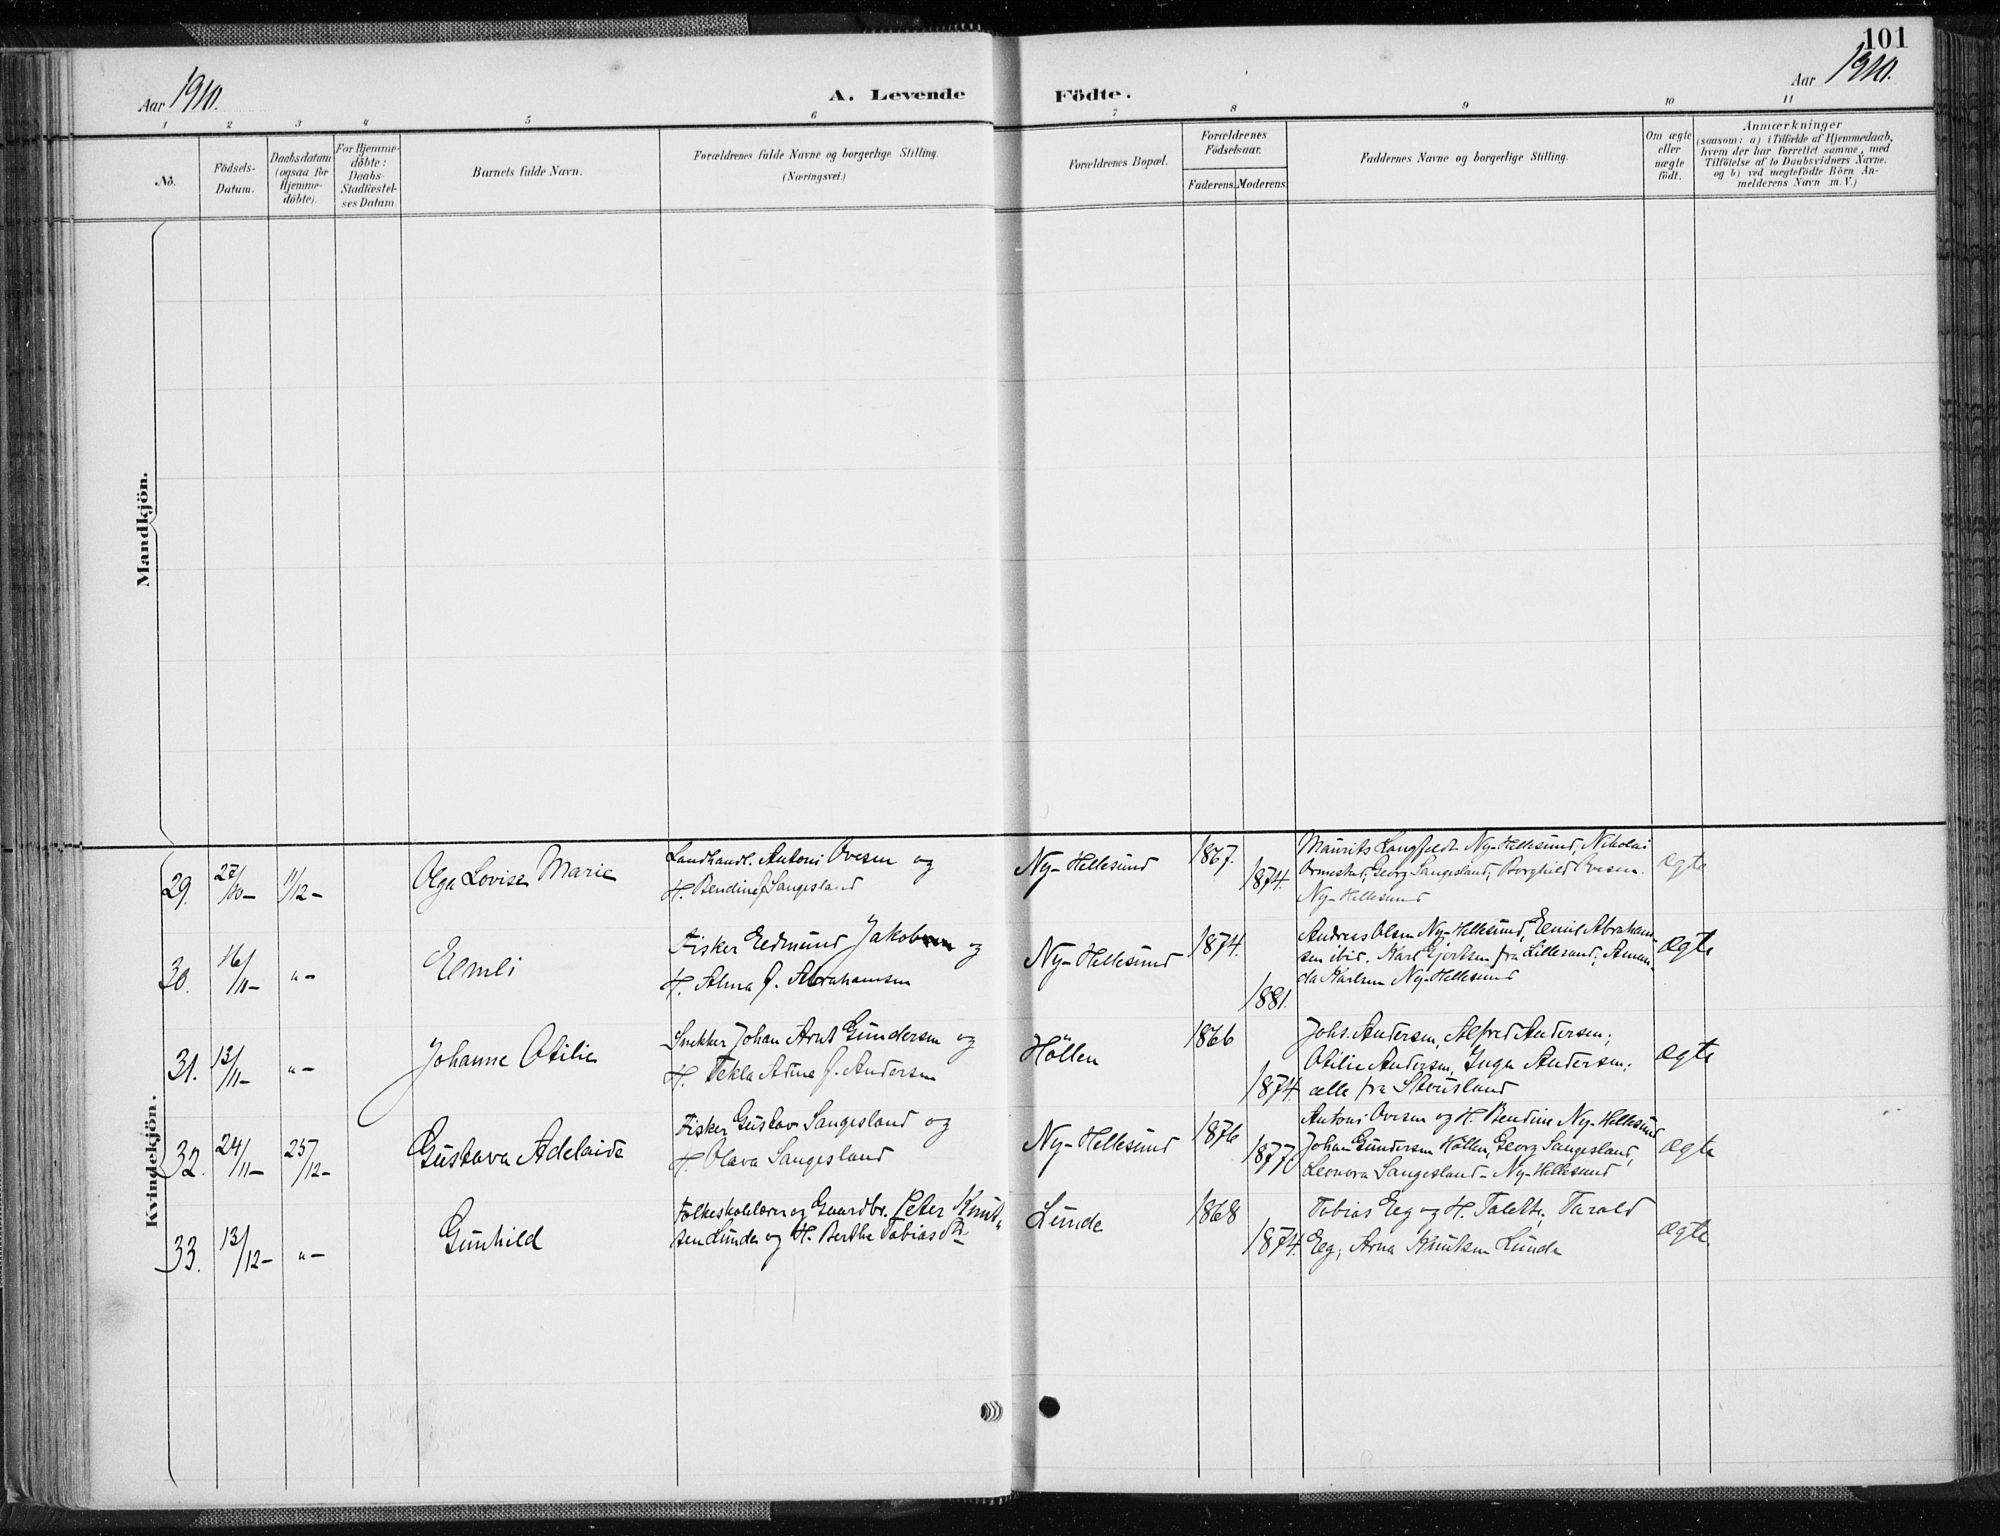 101
Aar 1910.
A. Levende Födte.
Aar 1910.
1 2 3 4 5 6 7 8 9 10 11
No.
Födsels-
Datum.
Daabsdatum
(ogsaa for
Hjemme-
döbte).
For Hjemme-
döbte:
Daabs-
Stadfæstel-
ses Datum.
Barnets fulde Navn.
Forældrenes fulde Navne og borgerlige Stilling.
(Næringsvei.)
Forældrenes Bopæl.
Forældrenes
Födselsaar.
Faderens. Moderens.
Faddernes Navne og borgerlige Stilling.
Om ægte
eller
uægte
födt.
Anmærkninger
(saasom: a) i Tilfælde af Hjemmedaab,
hvem der har forrettet samme, med
Tilföielse af to Daabsvidners Navne.
og b) ved uægtefödte Börn An-
melderens Navn m. V.)
Mandkjön.
Kvindekjön.
29. 27/10- 11/12- Olga Lovise Marie
Landhandl. Antoni Ovesen og
H. Bendine f. Langesland
Ny-Hellesund 1867. 1874.
Maurits Langfeldt Ny-Hellesund, Nikolai
Ormestad, Georg Langesland, Borghild Ovesen.
Ny-Hellesund
ægte
30. 16/11- "- Elmli
Fisker Edmund Jakobsen og
H. Alma f. Abrahamsen
Ny-Hellesund 1874. 1881.
Andreas Olsen Ny-Hellesund, Emil Abraham-
sen ibid. Karl fra Lillesand, Aman-
da Karlsen Ny-Hellesund
ægte
31. 13/11- "- Johanne Otilie
Snekker Johan Arnt Gundersen og
H. Tekla f. Andersen
Höllen 1866 1874.
Johs. Andersen, Alfred Andersen;
Otilie Andersen, Inga Andersen;
alle fra Stousland
ægte
32. 24/11- 25/12- Gustava Adelaide
Fisker Gustav Langesland og
H. Olava Langesland
Ny-Hellesund 1876 1877.
Antoni Ovesen og H. Bendine Ny-Hellesund
Johan Gundersen Höllen, Georg Langesland,
Leonora Langesland - Ny-Hellesund
ægte
33. 13/12- "- Gunhild
Folkeskolelærer og Gaardbr. Peter Knut-
sen Lunde og H. Berthe Tobiasdtr
Lunde 1868 1874.
Tobias Eeg og H. Talette; Tarald
Eeg; Arna Knutsen Lunde
ægte